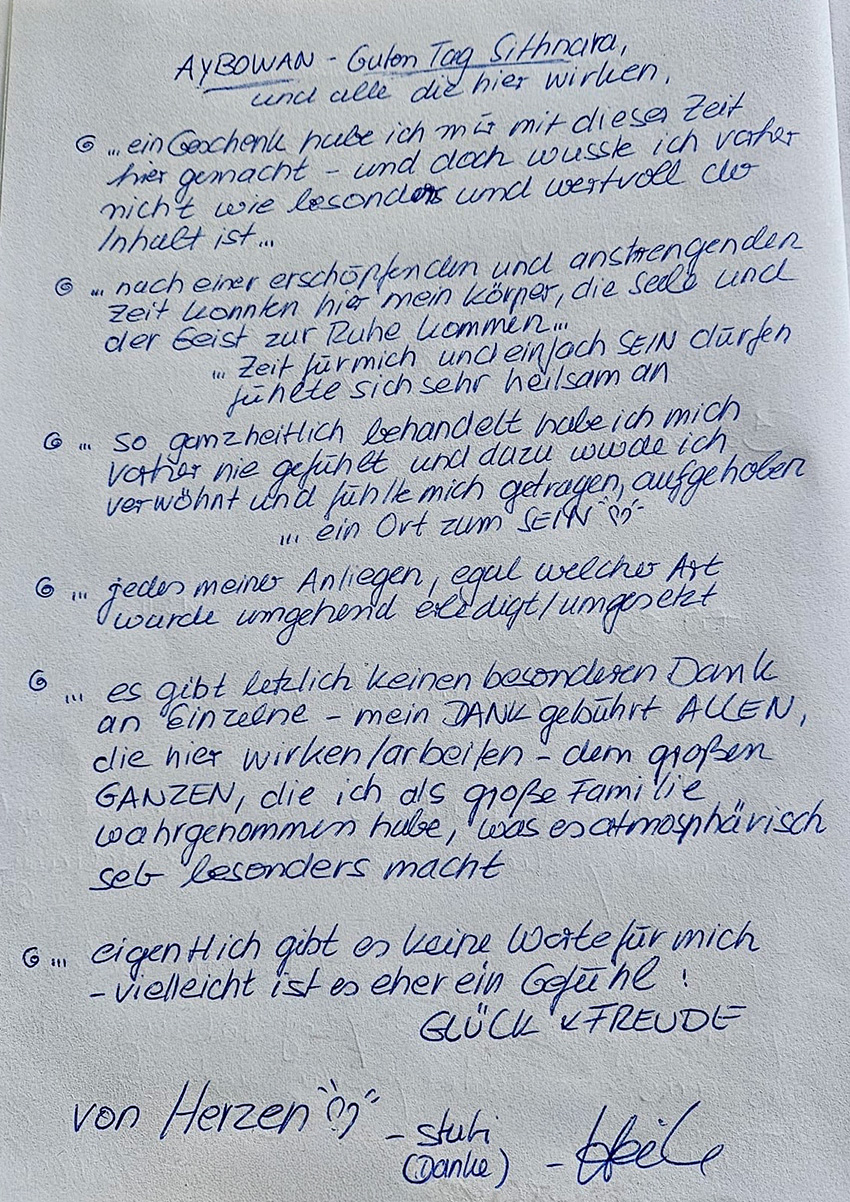 AYBOWAN - Guten Tag Sithnara,
und alle die hier wirken,
... ein Geschenk habe ich mir mit dieser Zeit
hier gemacht - und doch wusste ich vorher
nicht wie besonders und wertvoll der
Inhalt ist...
... nach einer erschöpfenden und anstrengenden
Zeit konnten hier mein Körper, die Seele und
der Geist zur Ruhe kommen...
... Zeit für mich und einfach SEIN dürfen
fühlte sich sehr heilsam an
... so ganzheitlich behandelt habe ich mich
vorher nie gefühlt und dazu wurde ich
verwöhnt und fühlte mich getragen, aufgehoben
... ein Ort zum SEIN
... jedes meiner Anliegen, egal welcher Art
wurde umgehend erledigt/umgesetzt
... es gibt letzlich keinen besonderen Dank
an Einzelne - mein DANK gebührt ALLEN,
die hier wirken/arbeiten - dem großen
GANZEN, die ich als große Familie
wahrgenommen habe, was es atmosphärisch
sehr besonders macht
... eigentlich gibt es keine Worte für mich
- vielleicht ist es eher ein Gefühl !
GLÜCK & FREUDE
von Herzen
- stuti
(Danke) -